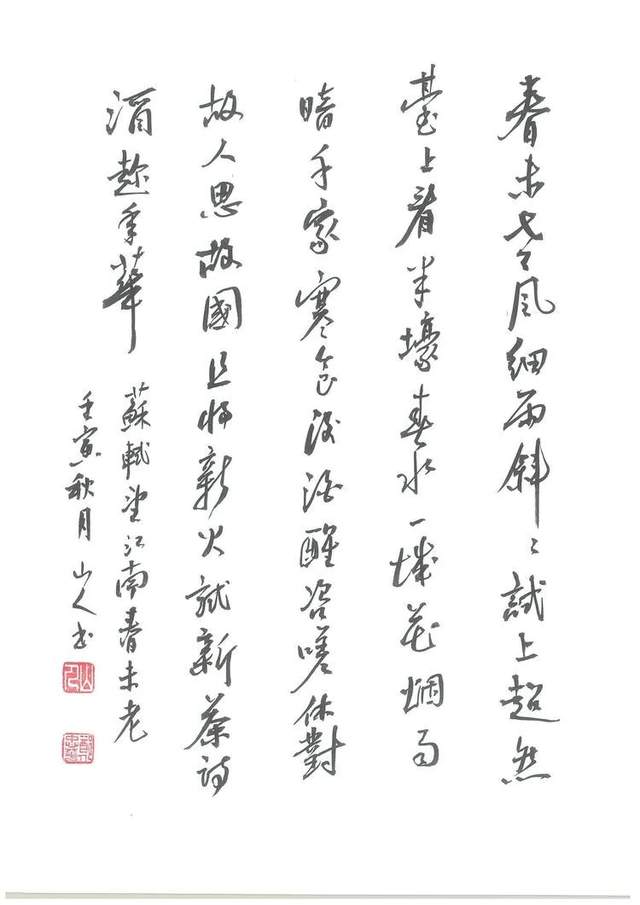 春未老風細雨斜〻試上超然
臺上看半壕春水一城花煙雨
暗千家寒食後酒醒咨嗟休對
故人思故國且將薪火試新茶詩
酒趁年華
蘇軾望江南春未老
壬寅秋月山人书
山人